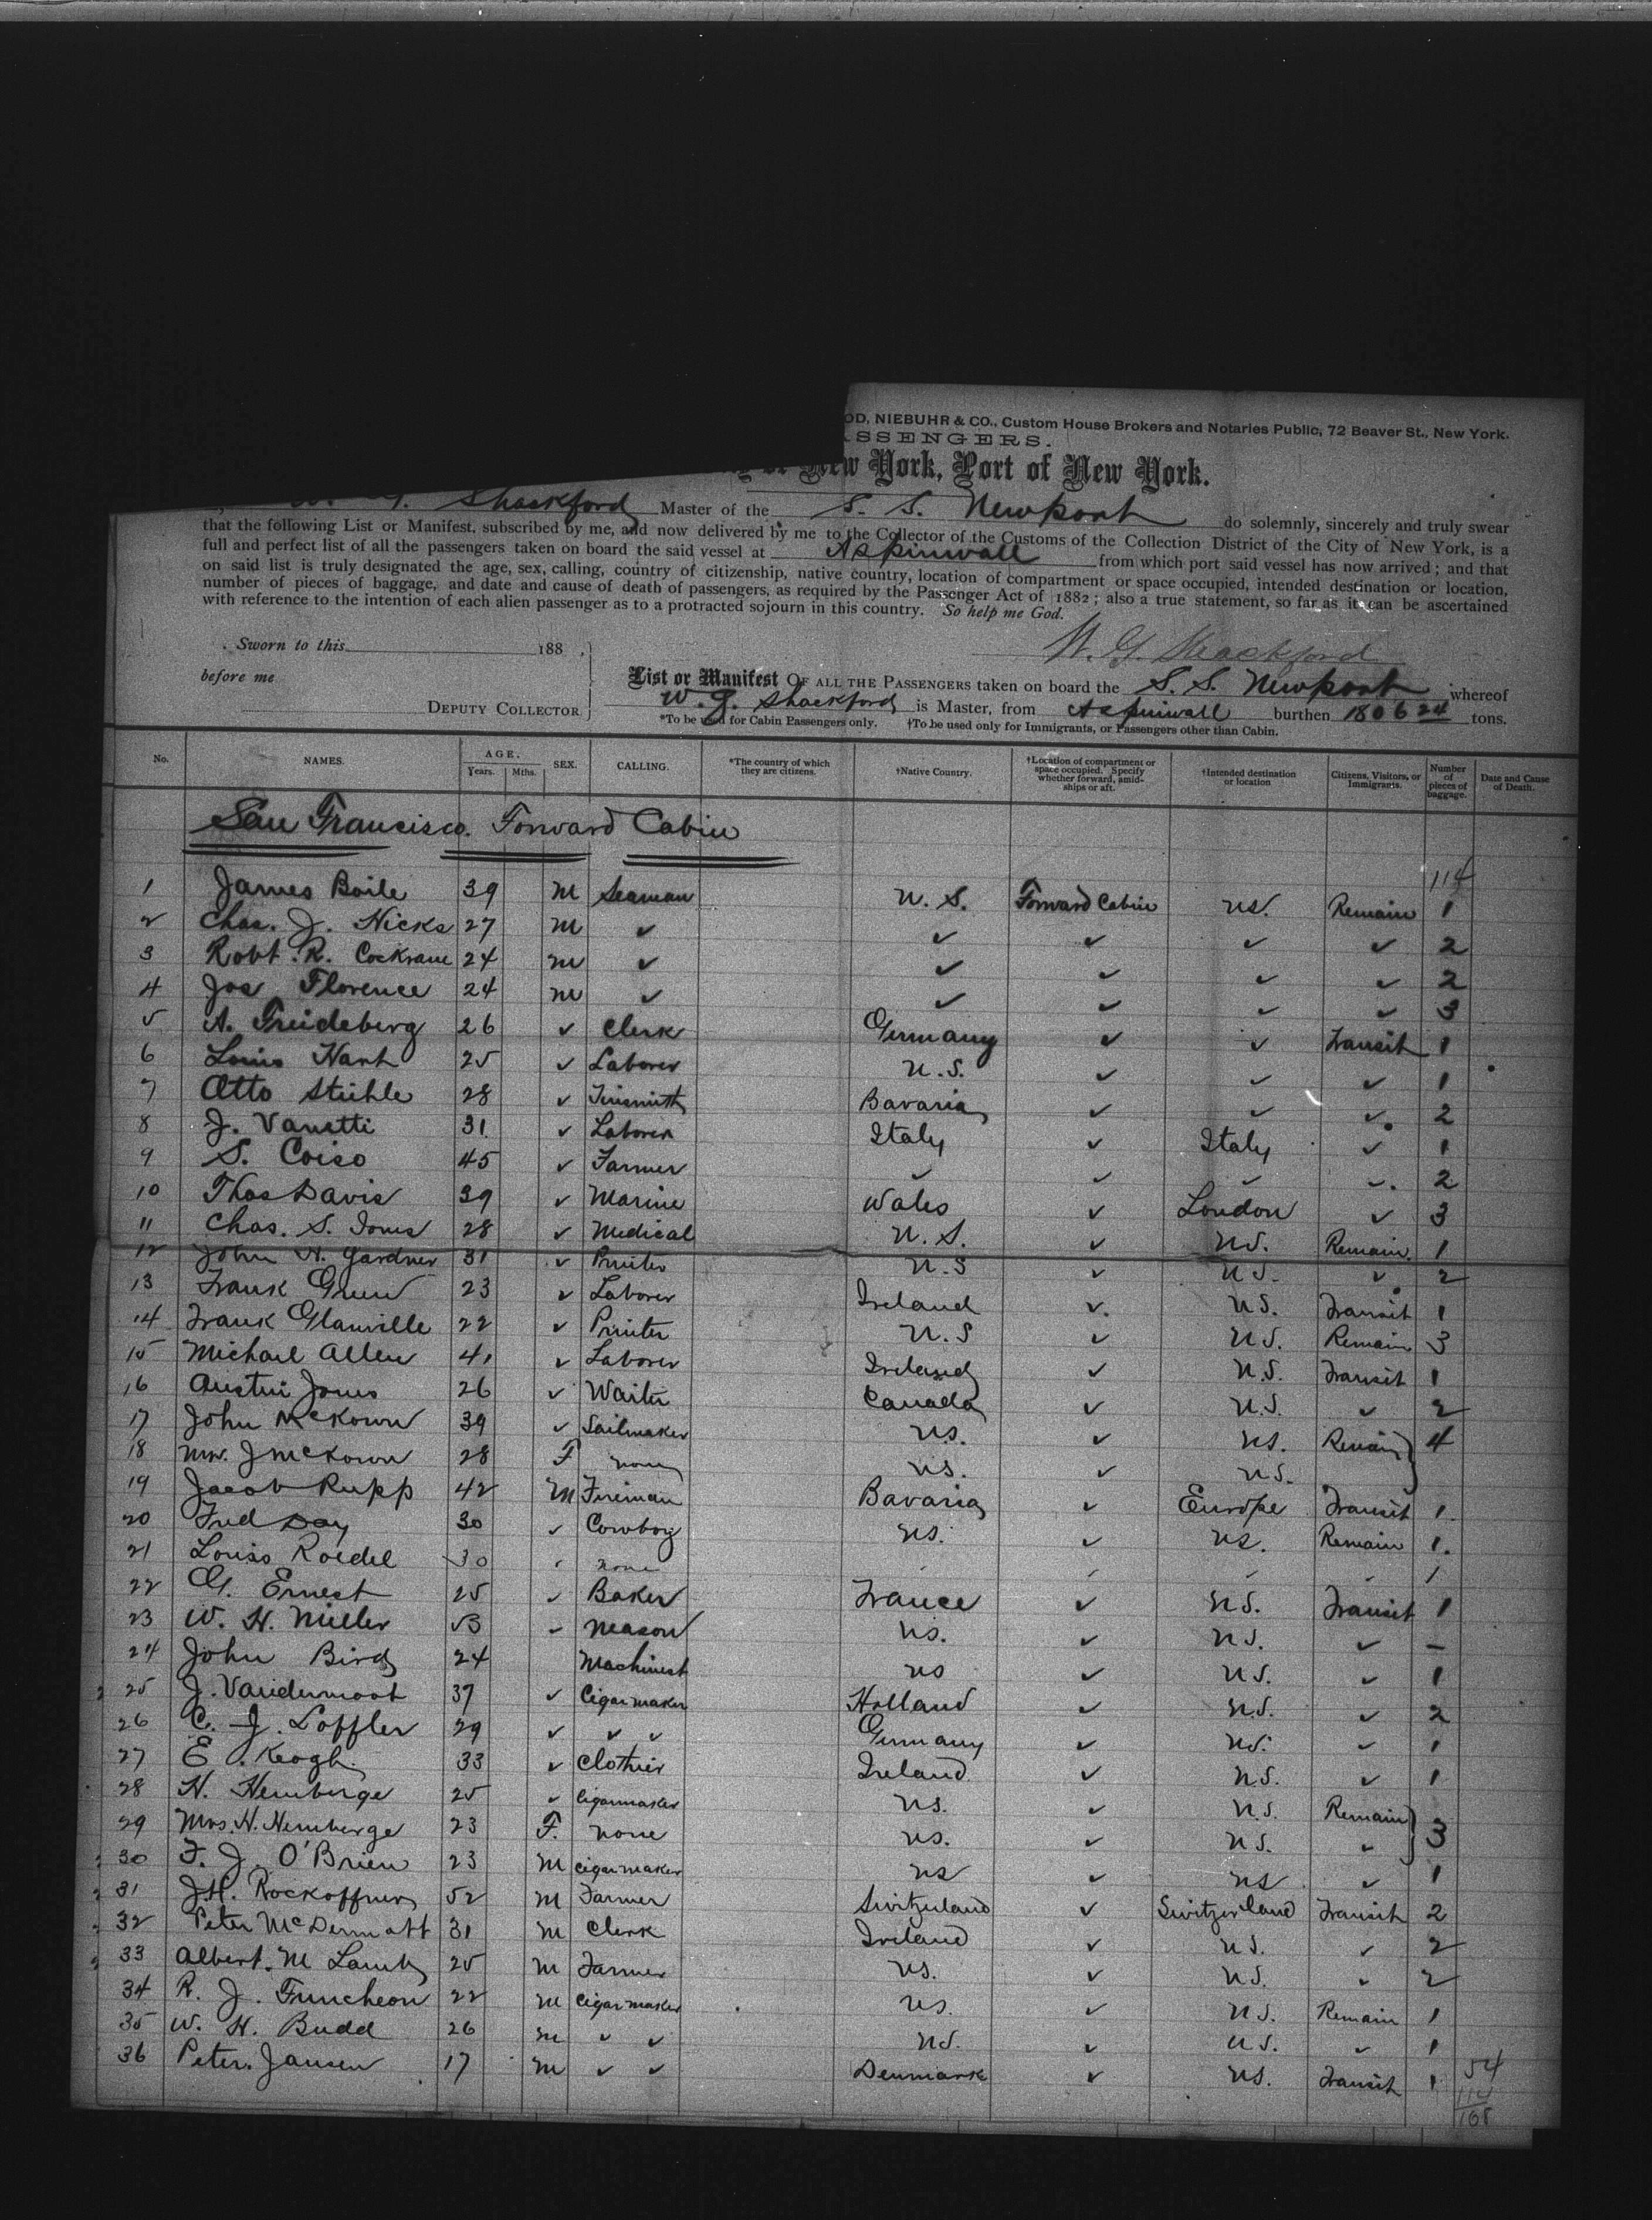 OD, NIEBUHR & CO., Custom House Brokers and Notaries Public, 72 Beaver St., New York.
SSENGERS.
New York, Port of New York.
W. G. Shackford Master of the S. S. Newport do solemnly, sincerely and truly swear
that the following List or Manifest, subscribed by me, and now delivered by me to the Collector of the Customs of the Collection District of the City of New York, is a
full and perfect list of all the passengers taken on board the said vessel at Aspinwall from which port said vessel has now arrived; and that
on said list is truly designated the age, sex, calling, country of citizenship, native country, location of compartment or space occupied, intended destination or location,
number of pieces of baggage, and date and cause of death of passengers, as required by the Passenger Act of 1882; also a true statement, so far as it can be ascertained
with reference to the intention of each alien passenger as to a protracted sojourn in this country. So help me God.
Sworn to this 188 W. G. Shackford
before me List or Manifest OF ALL THE PASSENGERS taken on board the S. S. Newport whereof
DEPUTY COLLECTOR W. G. Shackford is Master, from Aspinwall burthen tons.
*To be used for Cabin Passengers only. †To be used only for Immigrants, or Passengers other than Cabin.
No. NAMES. AGE. Years. Mths. SEX. CALLING. *The country of which they are citizens. †Native Country. †Location of compartment or space occupied. Specify whether forward, amidships or aft. †Intended destination or location Citizens, Visitors, or Immigrants. Number of pieces of baggage. Date and Cause of Death.
San Francisco. Forward Cabin
114
1 James Boile 39 M Seaman U.S. Forward Cabin US. Remain 1
2 Chas. J. Hicks 27 M ✓ ✓ ✓ ✓ ✓ 2
3 Robt. R. Cockrane 24 M ✓ ✓ ✓ ✓ ✓ 2
4 Jos Florence 24 M ✓ ✓ ✓ ✓ ✓ 3
5 A. Freideberg 26 ✓ Clerk Germany ✓ ✓ Transit 1
6 Louis Hart 25 ✓ Laborer U.S. ✓ ✓ ✓ 1
7 Otto Stiehle 28 ✓ Tinsmith Bavaria ✓ ✓ ✓ 2
8 J. Vanetti 31 ✓ Laborer Italy ✓ Italy ✓ 1
9 S. Coiso 45 ✓ Farmer ✓ ✓ ✓ ✓ 2
10 Thos Davis 39 ✓ Marine Wales ✓ London ✓ 3
11 Chas. S. Jones 28 ✓ Medical U.S. ✓ US. Remain. 1
12 John H. Gardner 31 ✓ Printer U.S ✓ US. ✓ 2
13 Frank Green 23 ✓ Laborer Ireland ✓ US. Transit 1
14 Frank Glanville 22 ✓ Printer U.S ✓ U.S. Remain 3
15 Michael Allen 41 ✓ Laborer Ireland ✓ U.S. Transit 1
16 Austin Jones 26 ✓ Waiter Canada ✓ U.S. ✓ 2
17 John McKown 39 ✓ Sailmaker US. ✓ US. Remain 4
18 Mrs. J McKown 28 F none US. ✓ US.
19 Jacob Rupp 42 M Fireman Bavaria ✓ Europe Transit 1.
20 Fred Day 30 ✓ Cowboy US. ✓ US. Remain 1.
21 Louis Roedel 30 ✓ none ✓ ✓ ✓ ✓ 1
22 G. Ernest 25 ✓ Baker France ✓ US. Transit 1
23 W. H. Miller ✓ Meason US. ✓ US. ✓ –
24 John Bird 24 Machinest US ✓ U.S. ✓ 1
25 J. Vandermoot 37 ✓ Cigarmaker Holland ✓ U.S. ✓ 2
26 C. J. Loffler 29 ✓ ✓ ✓ Germany ✓ US. ✓ 1
27 E. Keogh 33 ✓ Clothier Ireland ✓ U.S. ✓ 1
28 H. Hemberge 25 ✓ Cigarmaker US. ✓ U.S. Remain
29 Mrs. H. Hemberge 23 F. none US. ✓ U.S. ✓ 3
30 F. J. O'Brien 23 M Cigarmaker US ✓ US ✓ 1
31 J.H. Rockoffner 52 M Farmer Switzerland ✓ Switzerland Transit 2
32 Peter McDermott 31 M Clerk Ireland ✓ US. ✓ 2
33 Albert. M Lamb 25 M Farmer US. ✓ US. ✓ 2
34 R. J. Funcheon 22 M Cigarmaker US. ✓ U.S. Remain 1
35 W. H. Budd 26 M ✓ ✓ US. ✓ U.S. ✓ 1
36 Peter. Jansen 17 M ✓ ✓ Denmark ✓ US. Transit 1
54
114
168